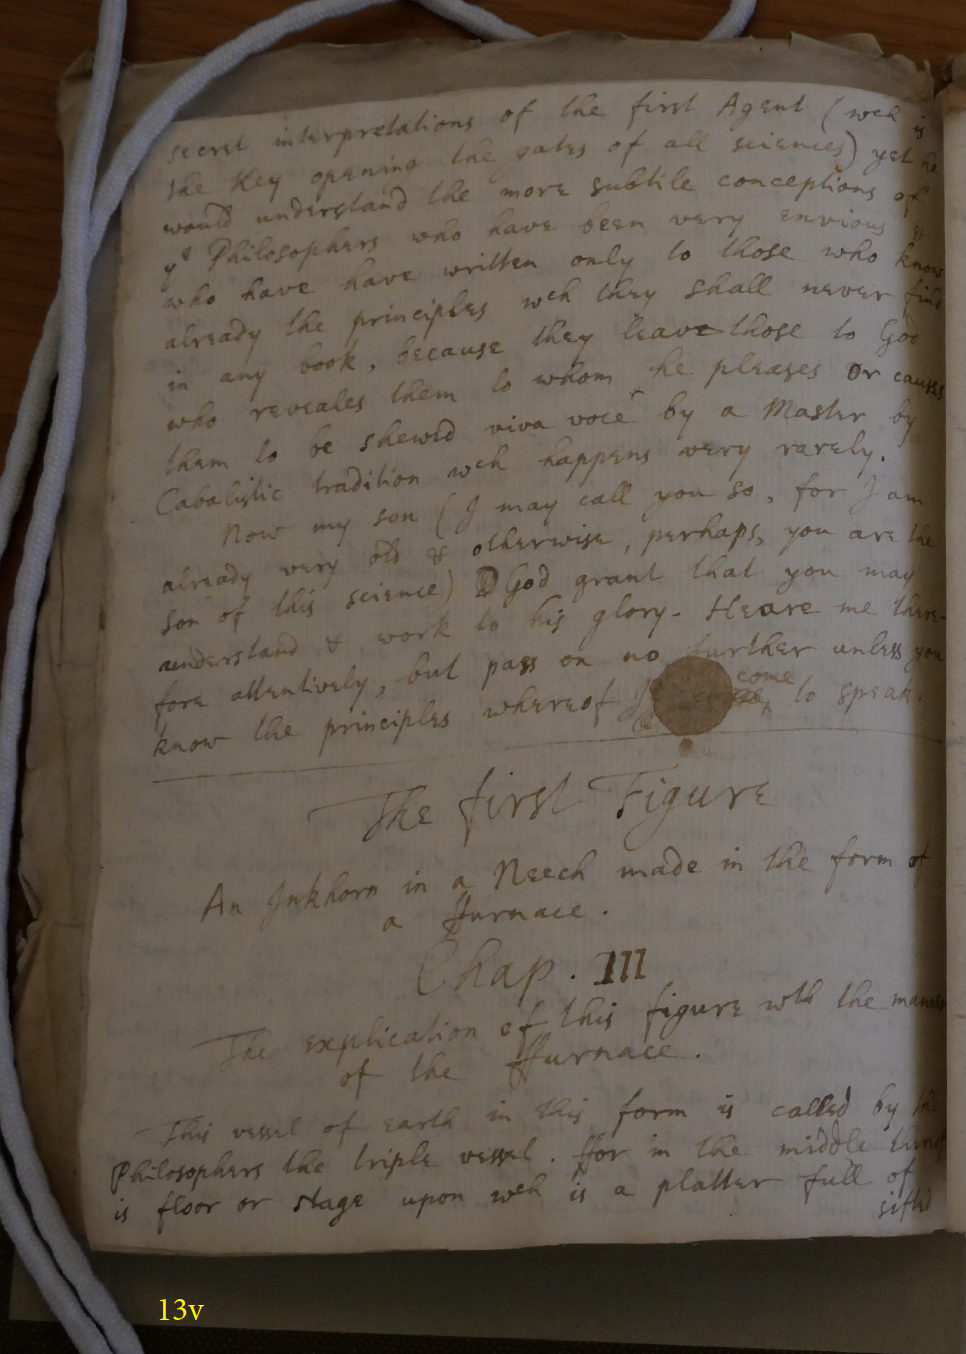 secret interpretations of the first Agent (wch is
the Key opening the gates of all sciences) yet he
would understand the more subtile conceptions of
ye Philosophers who have been very envious &
who have have written only to those who know
already the principles wch they shall never find
in any book, because they leave those to God
who reveales them to whom he pleases or causes
them to be shewed viva voce by a Master by
Cabalistic tradition wch happens very rarely.
Now my son (I may call you so, for I am
already very old & otherwise, perhaps, you are the
son of this science) God grant that you may
understand & work to his glory. Heare me there-
fore attentively, but pass on no further unless you
know the principles whereof I come to speak.
The first Figure
An Inkhorn in a Neech made in the form of
a ffurnace.
Chap. III
The explication of this figure wth the manner
of the ffurnace.
This vessel of earth in this form is called by the
Philosophers the triple vessel. ffor in the middle thereof
is floor or stage upon wch is a platter full of
sifted
13v